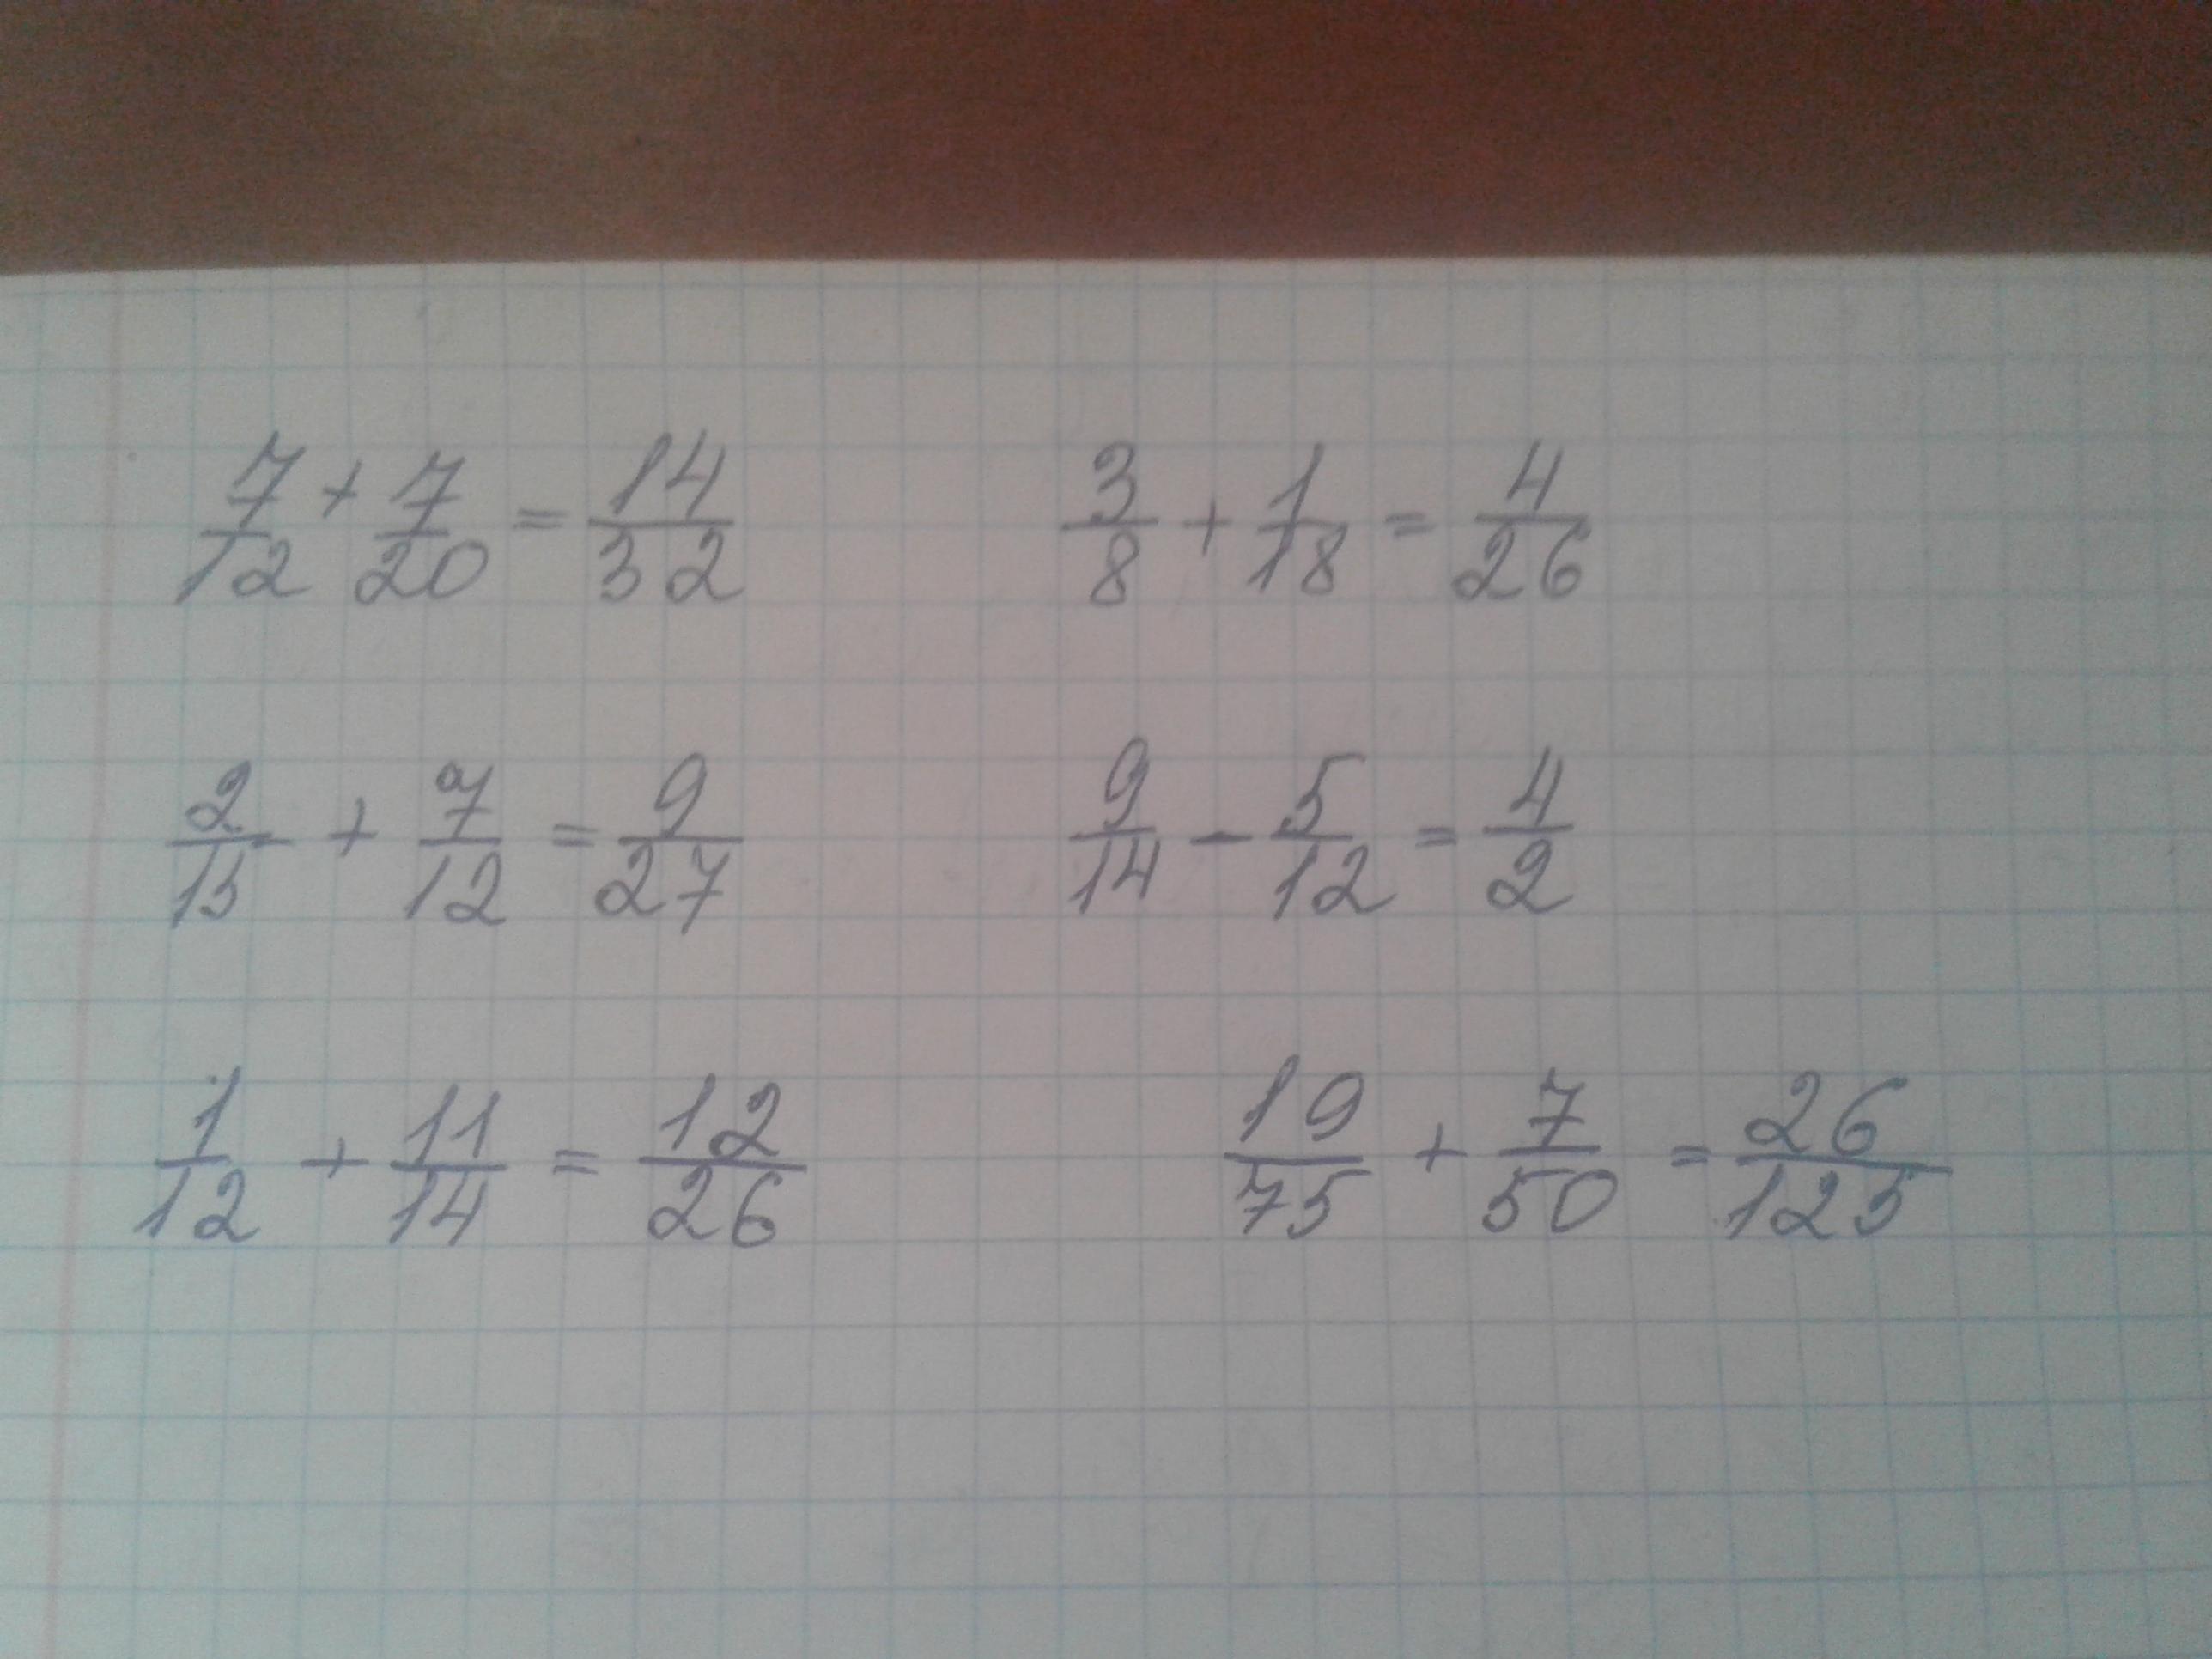 7/12 + 7/20 = 14/32    3/8 + 1/18 = 4/26
2/15 + 7/12 = 9/27    9/14 - 5/12 = 4/2
1/12 + 11/14 = 12/26    19/75 + 7/50 = 26/125